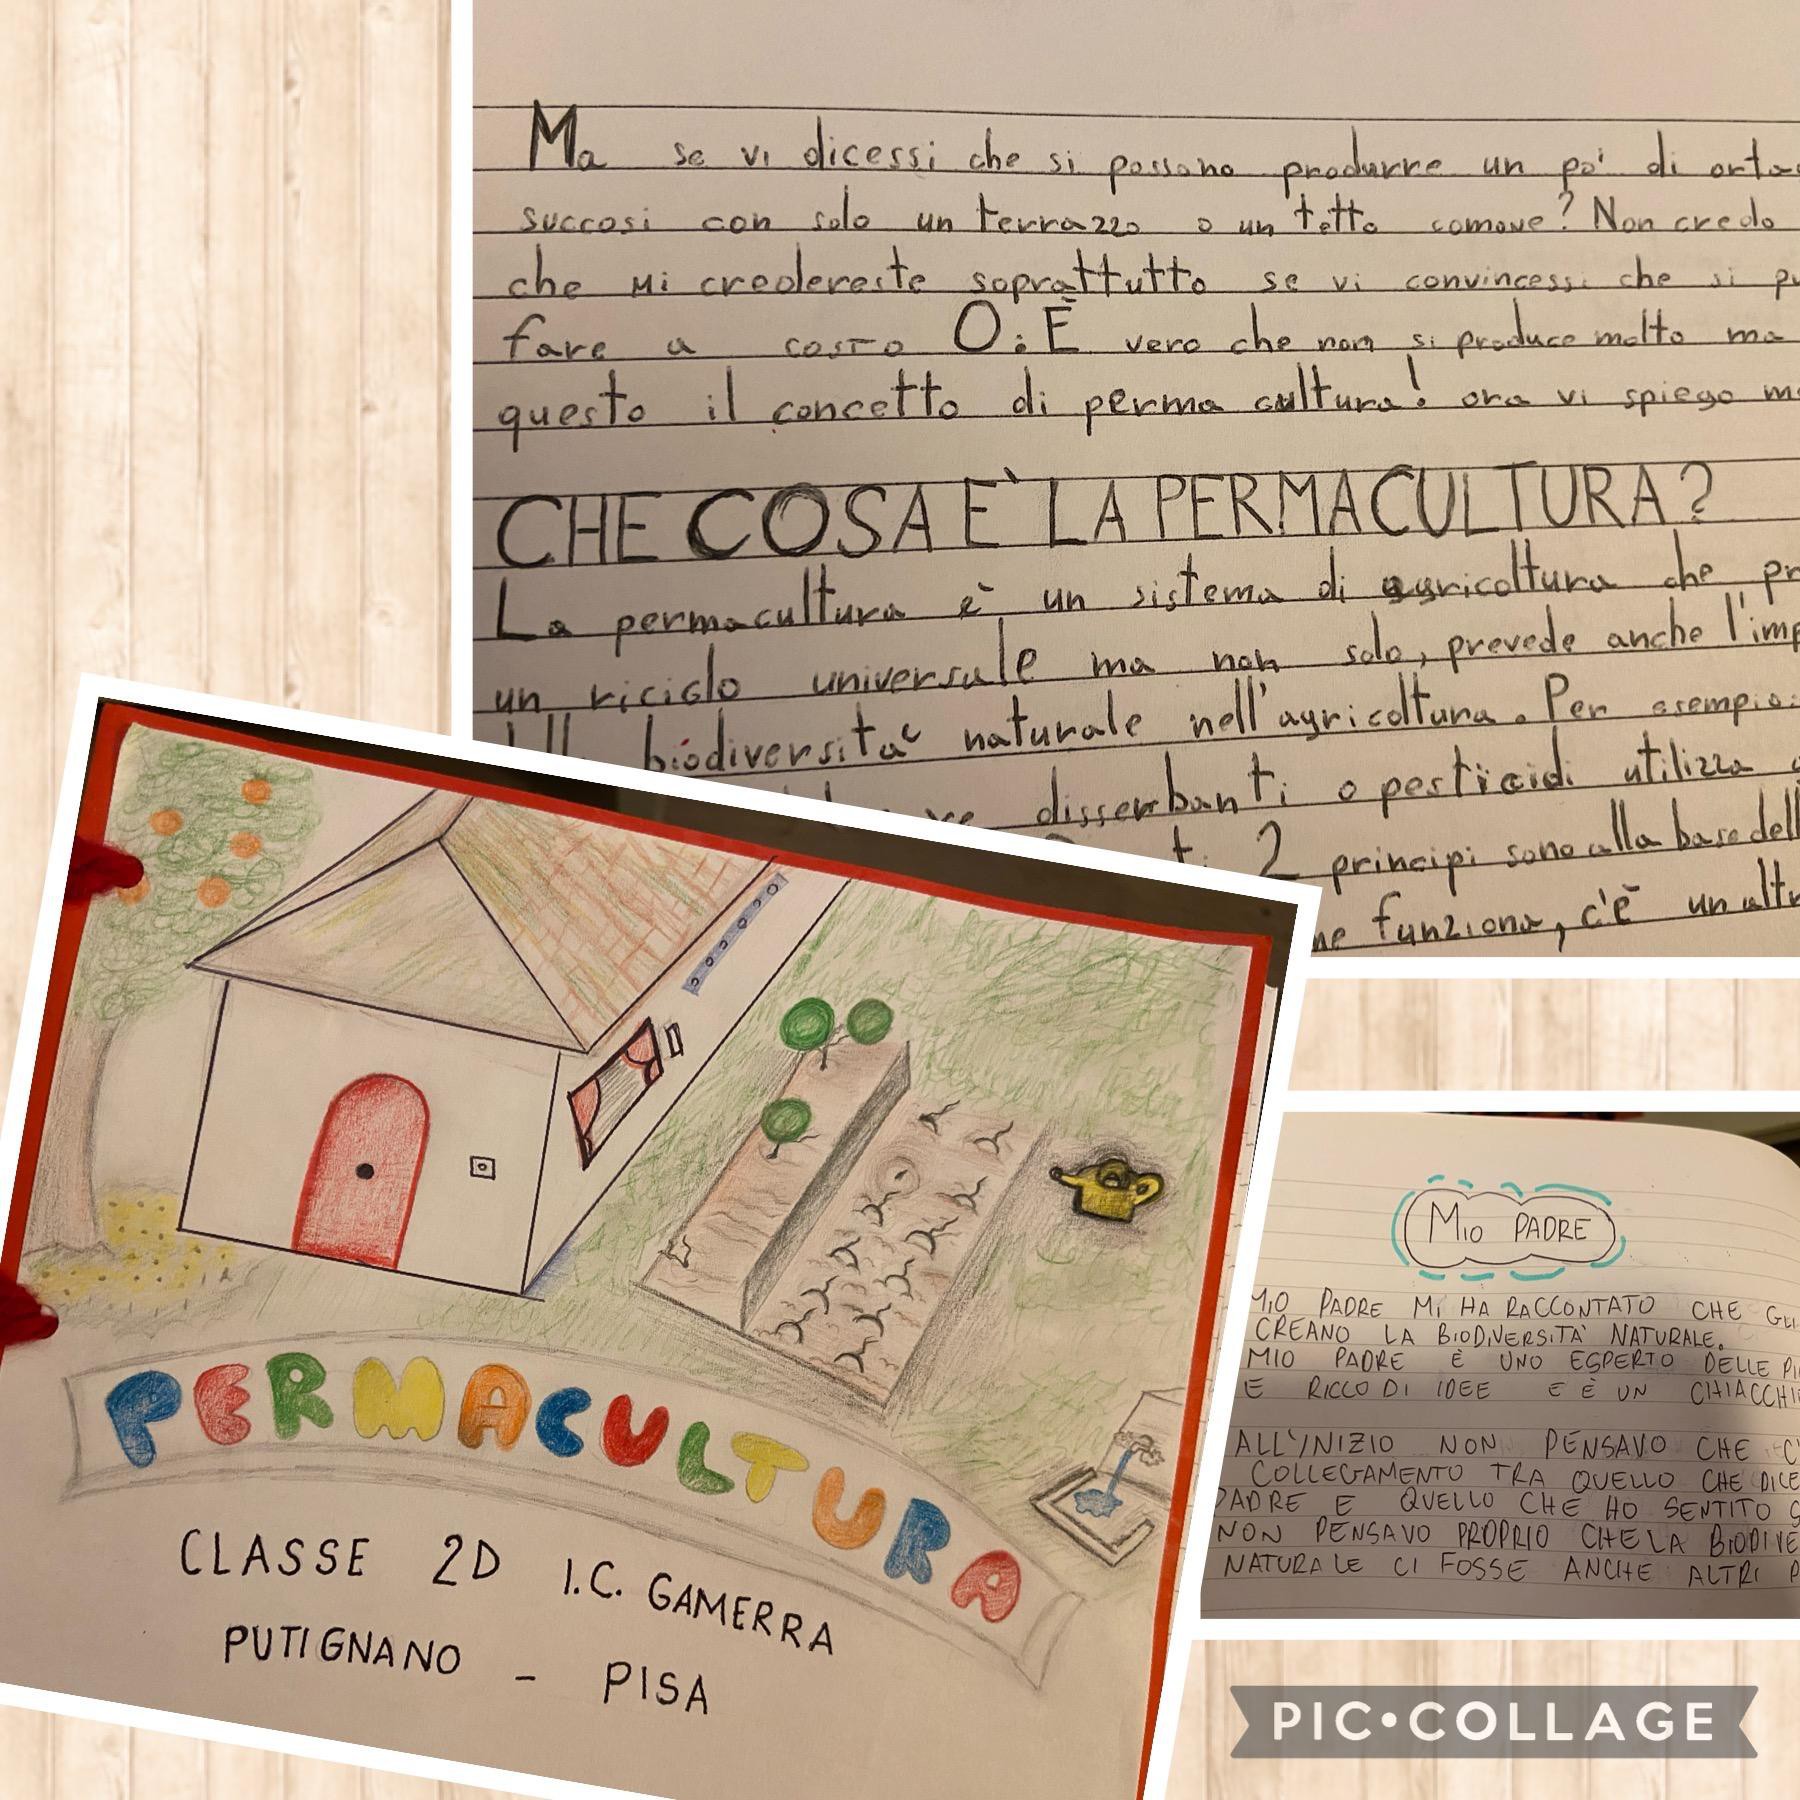 Ma se vi dicessi che si possono produrre un po' di orta
succosi con solo un terrazzo o un tetto comune? Non credo
che mi credereste soprattutto se vi convincessi che si pu
fare a costo 0. È vero che non si produce molto ma
questo il concetto di perma cultura! ora vi spiego me
CHE COSA E' LA PERMACULTURA?
La permacultura è un sistema di agricoltura che pr
un riciclo universale ma non solo, prevede anche l'imp
biodiversita' naturale nell'agricoltura. Per esempio:
disserbanti o pesticidi utilizza
2 principi sono alla base dell
ne funziona, c'è un altr
PERMACULTURA
CLASSE 2D I.C. GAMERRA
PUTIGNANO - PISA
MIO PADRE
MIO PADRE MI HA RACCONTATO CHE GLI
CREANO LA BIODIVERSITÀ NATURALE.
MIO PADRE È UNO ESPERTO DELLE PI
E RICCO DI IDEE E È UN CHIACCHI
ALL'INIZIO NON PENSAVO CHE C'
COLLEGAMENTO TRA QUELLO CHE DICE
PADRE E QUELLO CHE HO SENTITO
NON PENSAVO PROPRIO CHE LA BIODIVE
NATURALE CI FOSSE ANCHE ALTRI P
PIC•COLLAGE